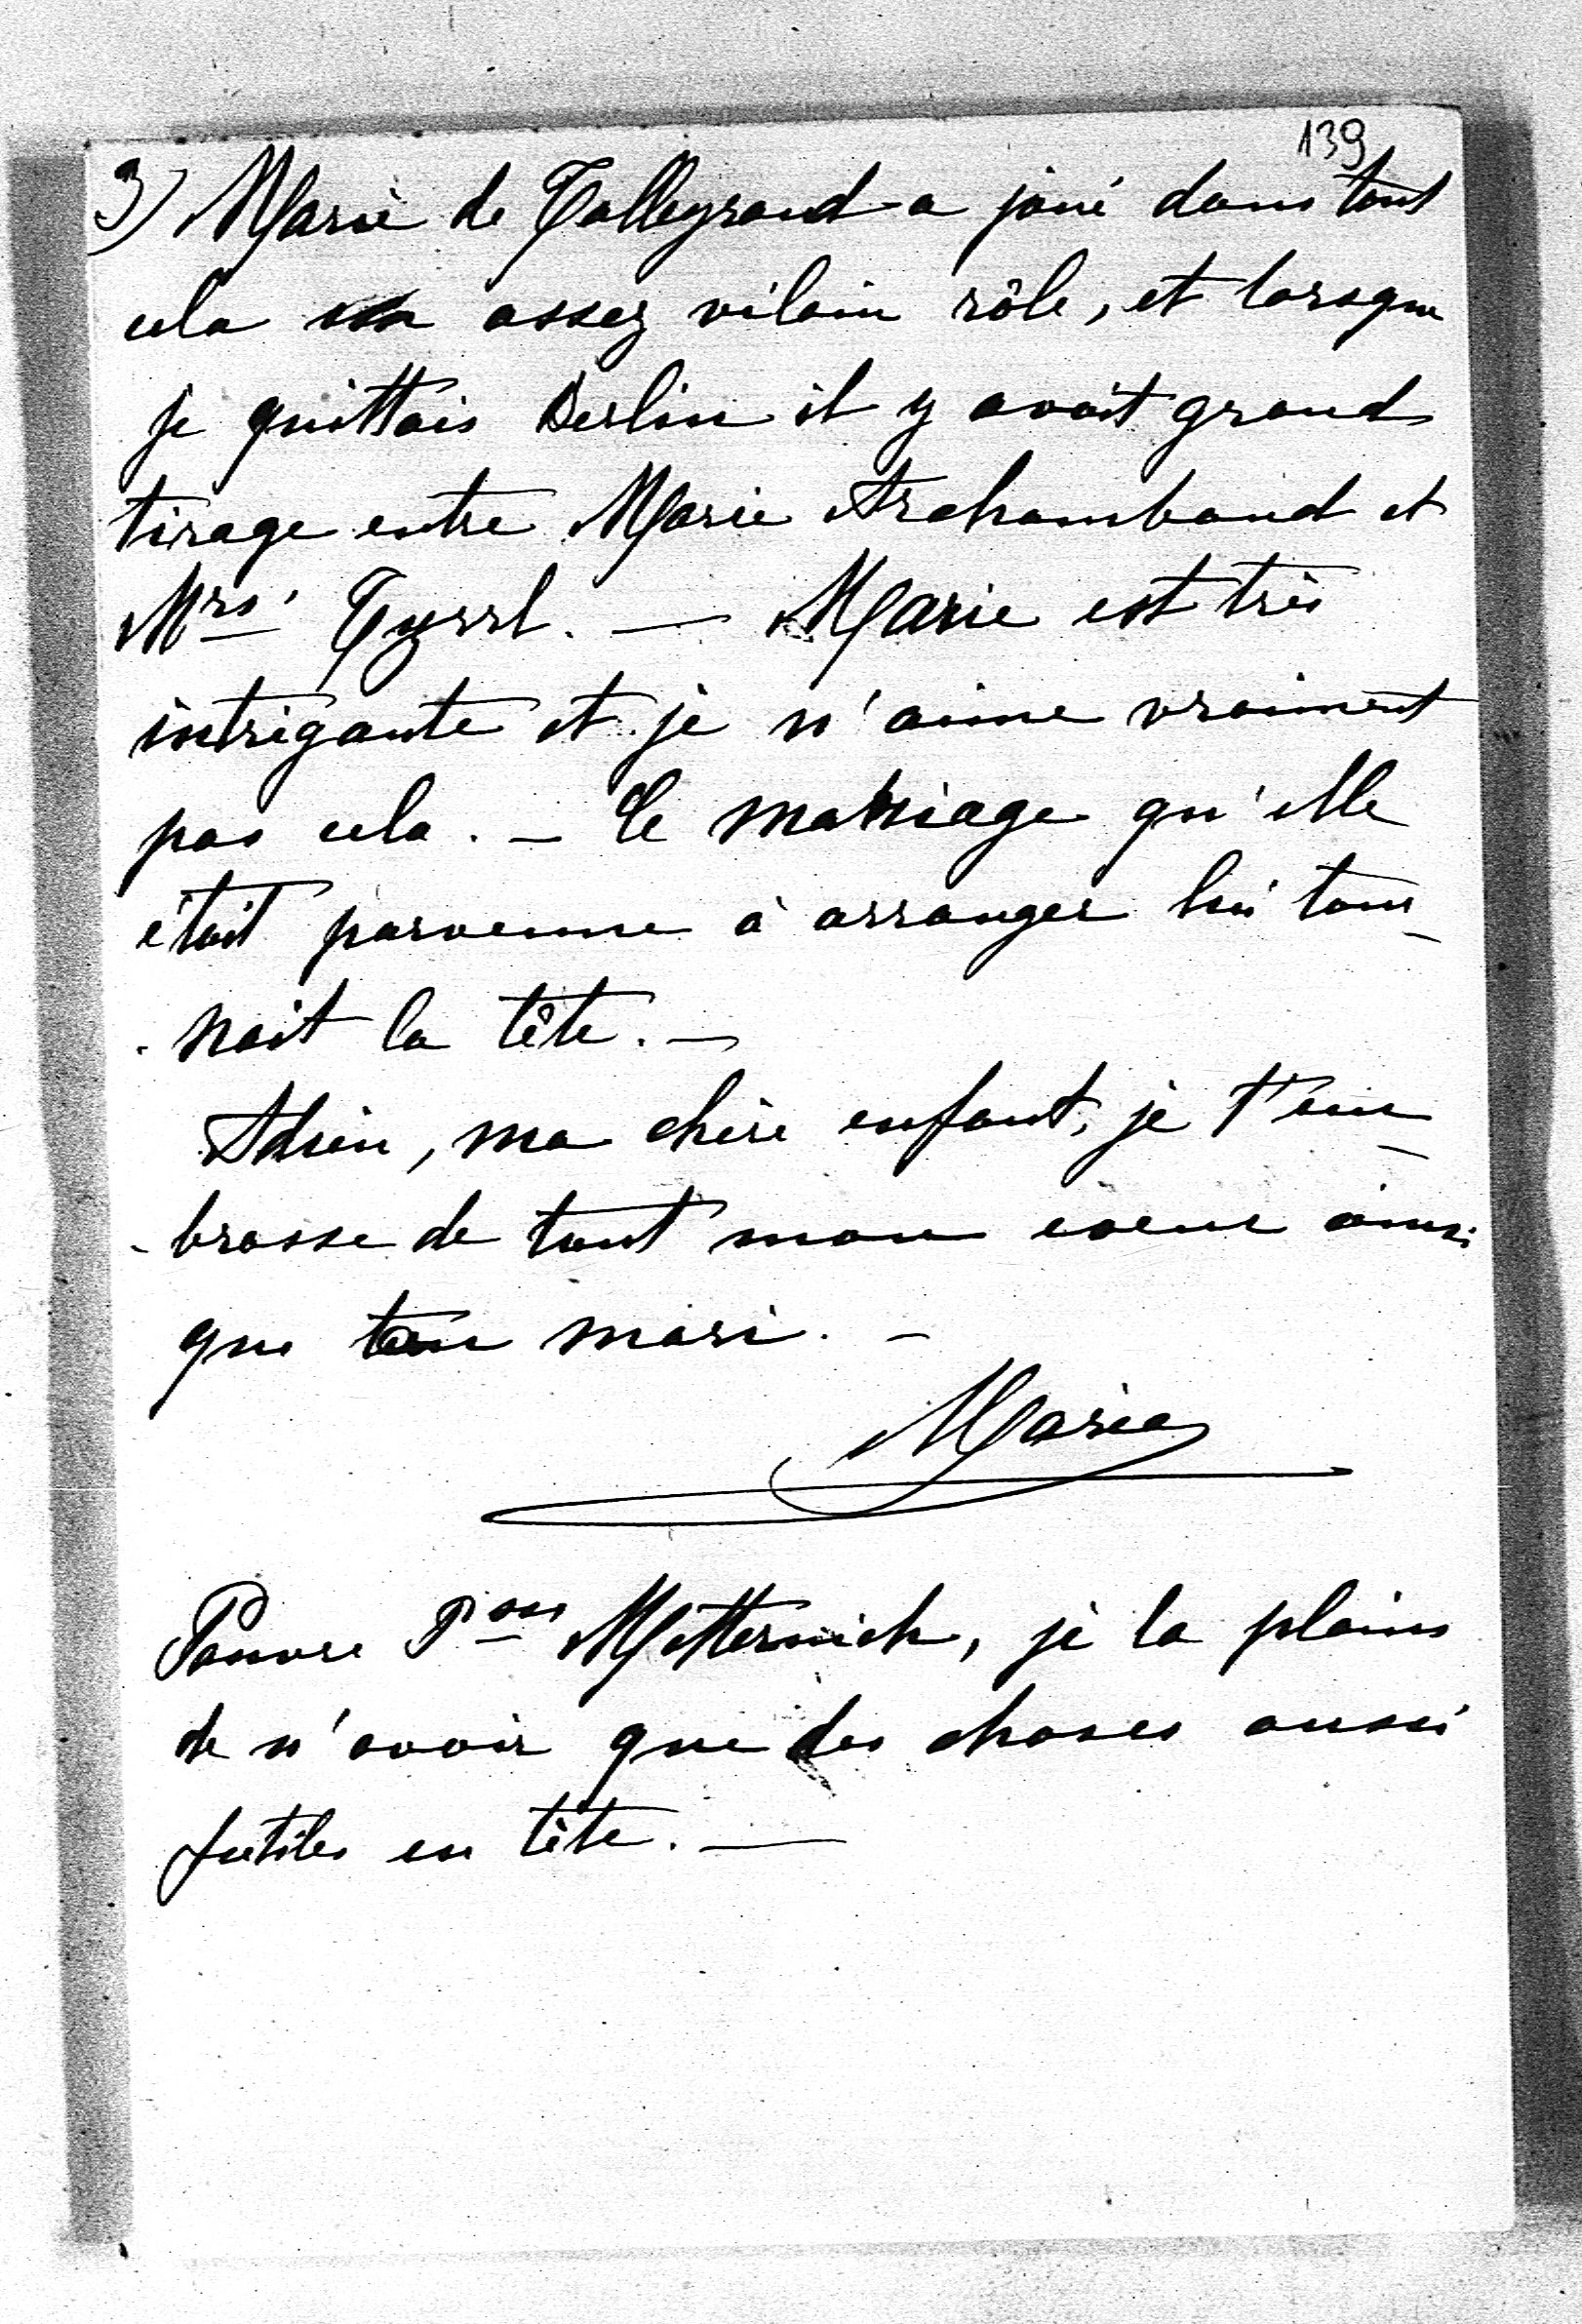 139
3) Marie de Talleyrand a joué dans tout
cela un assez vilain rôle, et lorsque
je quittais Berlin il y avait grand
tirage entre Marie Archambaud et
Mrs. Tyrrl. — Marie est très
intrigante et je n'aime vraiment
pas cela. — Le mariage qu'elle
était parvenue à arranger lui tour-
-nait la tête. —
Adieu, ma chère enfant, je t'em-
-brasse de tout mon coeur ainsi
que ton mari. —
Marie
Pauvre Pcess Metternich, je la plains
de n'avoir que des choses aussi
futiles en tête. —